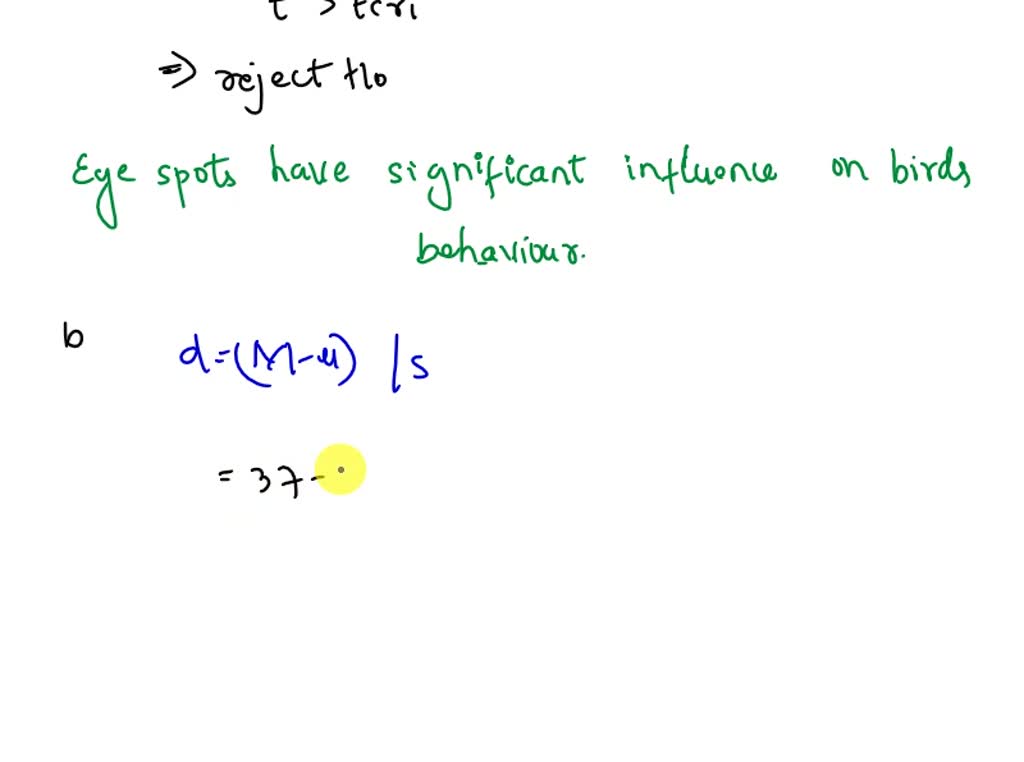 t > tcri
⇒ reject H0
Eye spots have significant influence on birds
behaviour.
b
d=(M-μ) / s
= 37-